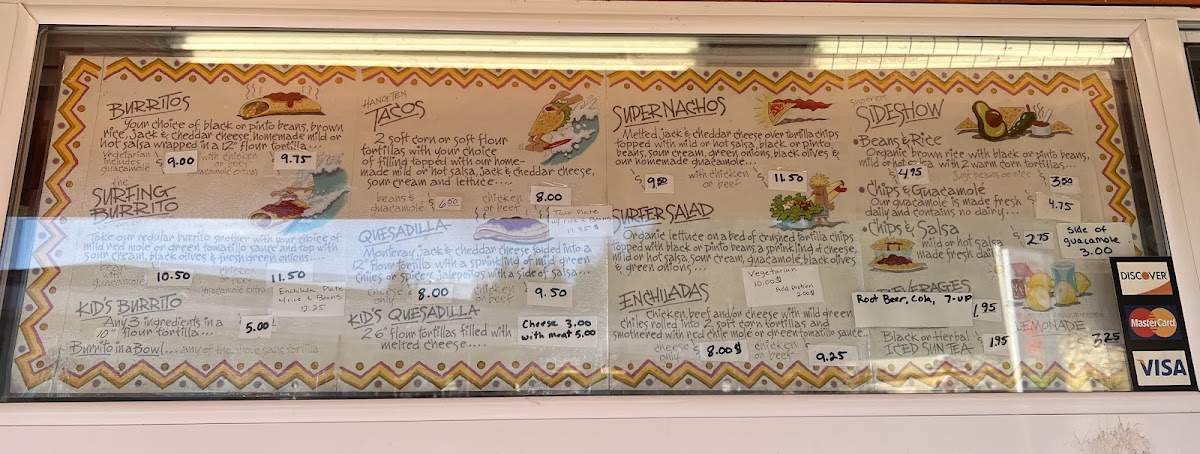 BURRITOS
Your choice of black or pinto beans, brown
rice, jack & cheddar cheese, homemade mild or
hot salsa wrapped in a 12" flour tortilla...
vegetarian
includes
guacamole
$ 9.00
with chicken
or beef
guacamole extra
9.75
the
SURFING
BURRITO
Take our regular burrito smother with your choice of
mild red mole or green tomatillo sauce and top with
sour cream, black olives & fresh green onions...
10.50
chicken
or beef
guacamole extra
11.50
Enchilada Plate
w/rice & Beans
12.25
KID'S BURRITO
Any 3 ingredients in a
10" flour tortilla...
5.00
Burrito in a Bowl.... any of the above sans tortilla
HANG TEN
TACOS
2 soft corn or soft flour
tortillas with your choice
of filling topped with our home-
made mild or hot salsa, jack & cheddar cheese,
sour cream and lettuce....
beans &
guacamole $ 6.50
chicken
or beef
8.00
Taco Plate
w/rice & Beans
11.95 $
QUESADILLA
Monteray jack & cheddar cheese folded into a
12" flour tortilla with a sprinkling of mild green
chiles or spicy jalapeños with a side of salsa...
cheese
only
8.00
chicken
or beef
9.50
KID'S QUESADILLA
2 6" flour tortillas filled with
melted cheese....
Cheese 3.00
with meat 5.00
SUPER NACHOS
Melted jack & cheddar cheese over tortilla chips
topped with mild or hot salsa, black or pinto
beans, sour cream, green onions, black olives &
our homemade guacamole...
$ 9.50
with chicken
or beef
$ 11.50
SURFER SALAD
Organic lettuce on a bed of crushed tortilla chips
topped with black or pinto beans a sprinkling of cheese
mild or hot salsa, sour cream, guacamole, black olives
& green onions...
Vegetarian
10.00 $
Add Chicken
2.00 $
ENCHILADAS
Chicken beef and/or cheese with mild green
chiles rolled into 2 soft corn tortillas and
smothered with red chile mole or green tomatillo sauce...
cheese
only
$ 8.00 $
chicken
or beef
9.25
SIDESHOW
Beans & Rice
Organic brown rice with black or pinto beans,
mild or hot salsa with 2 warm corn tortillas...
$ 4.95
just beans or rice
$ 3.50
Chips & Guacamolé
Our guacamole is made fresh
daily and contains no dairy...
$ 4.75
Chips & Salsa
mild or hot salsa
made fresh daily
$ 2.75
Side of
guacamole
3.00
BEVERAGES
Root Beer, Cola, 7-UP
1.95
Black or Herbal
ICED SUN TEA
$ 1.95
LEMONADE
$ 3.25
DISCOVER
MasterCard
VISA